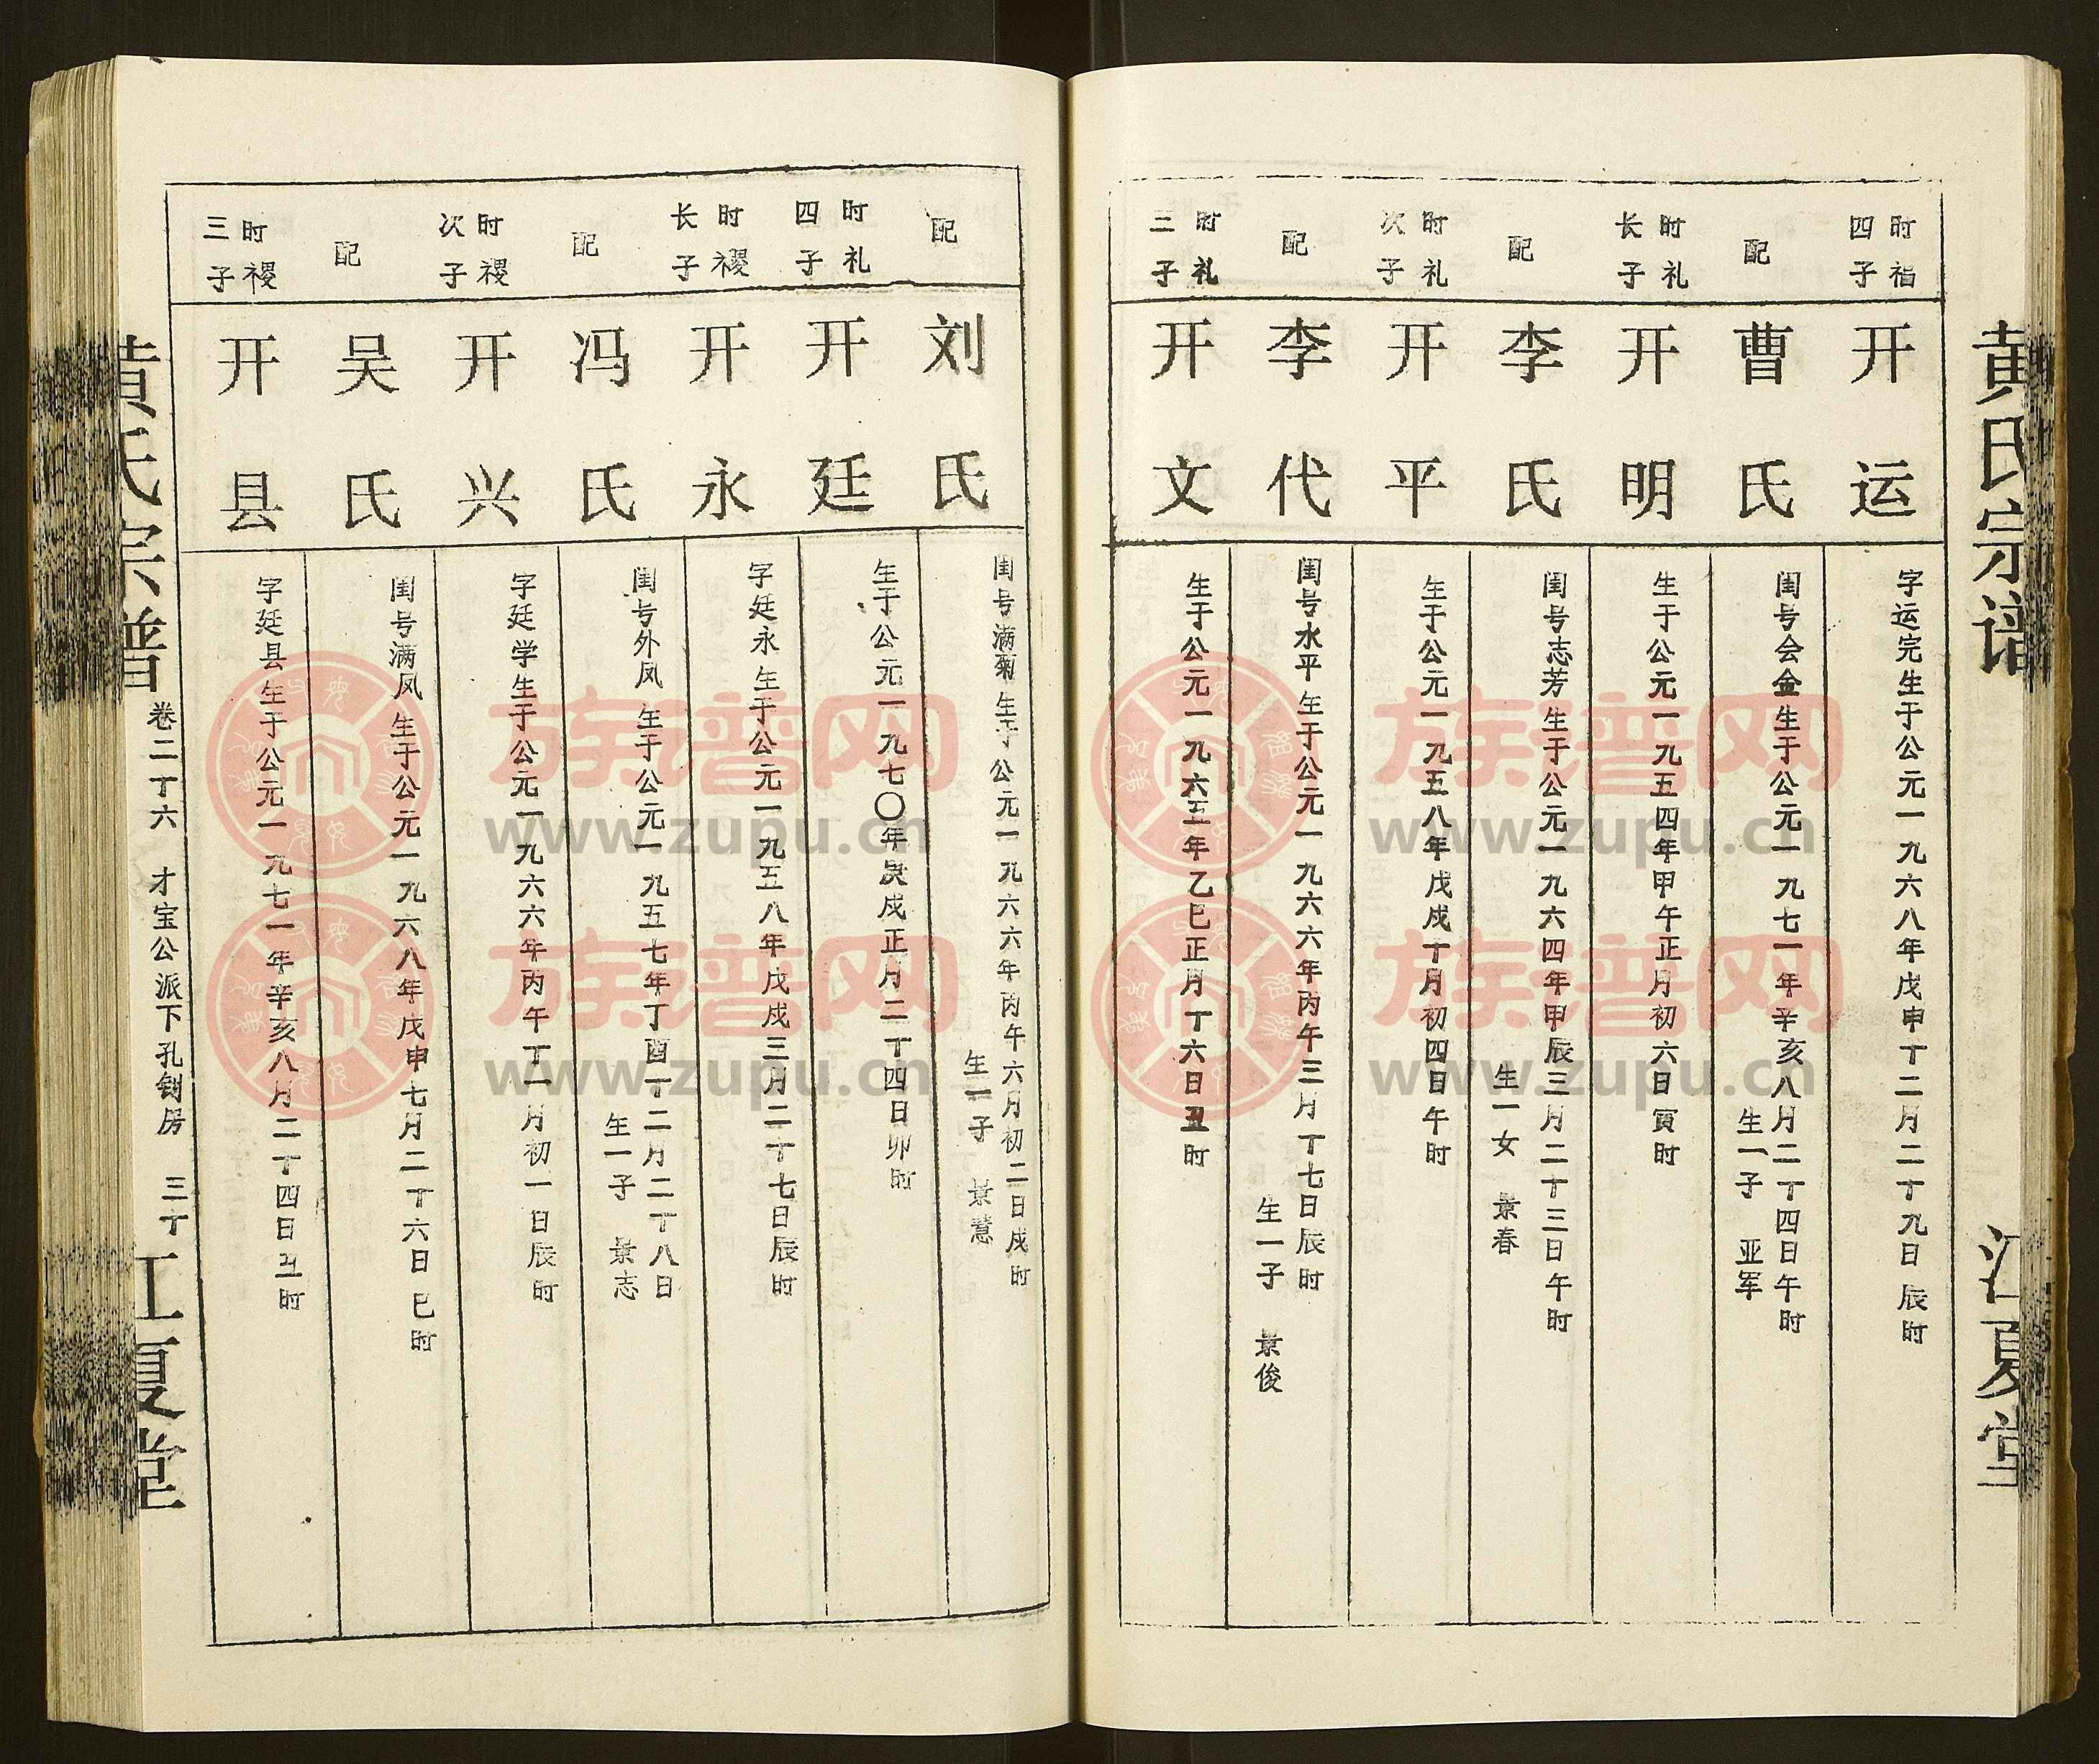 黄氏宗谱
江夏堂
时福
四子
开运
字运完生于公元一九六八年戊申丁二月二丁九日辰时
配
曹氏
闺号会金生于公元一九七一年辛亥八月二丁四日午时
生一子 亚军
时礼
长子
开明
生于公元一九五四年甲午正月初六日寅时
配
李氏
闺号志芳生于公元一九六四年甲辰三月二丁三日午时
生一女 景春
时礼
次子
开平
生于公元一九五八年戊戌丁月初四日午时
配
李代
闺号水平生于公元一九六六年丙午三月丁七日辰时
生一子 景俊
时礼
三子
开文
生于公元一九六五年乙巳正月丁六日丑时
配
刘氏
闺号满菊生于公元一九六六年丙午六月初二日戌时
生一子 景慧
时礼
四子
开廷
生于公元一九七〇年庚戌正月二丁四日卯时
时禝
长子
开永
字廷永生于公元一九五八年戊戌三月二丁七日辰时
配
冯氏
闺号外凤生于公元一九五七年丁酉丁二月二丁八日
生一子 景志
时禝
次子
开兴
字廷学生于公元一九六六年丙午丁一月初一日辰时
配
吴氏
闺号满凤生于公元一九六八年戊申七月二丁六日巳时
时禝
三子
开县
字廷县生于公元一九七一年辛亥八月二丁四日丑时
黄氏宗谱
卷二丁六 才宝公派下孔钊房 三丁
江夏堂
族谱网
www.zupu.cn
族谱网
www.zupu.cn
族谱网
www.zupu.cn
族谱网
www.zupu.cn